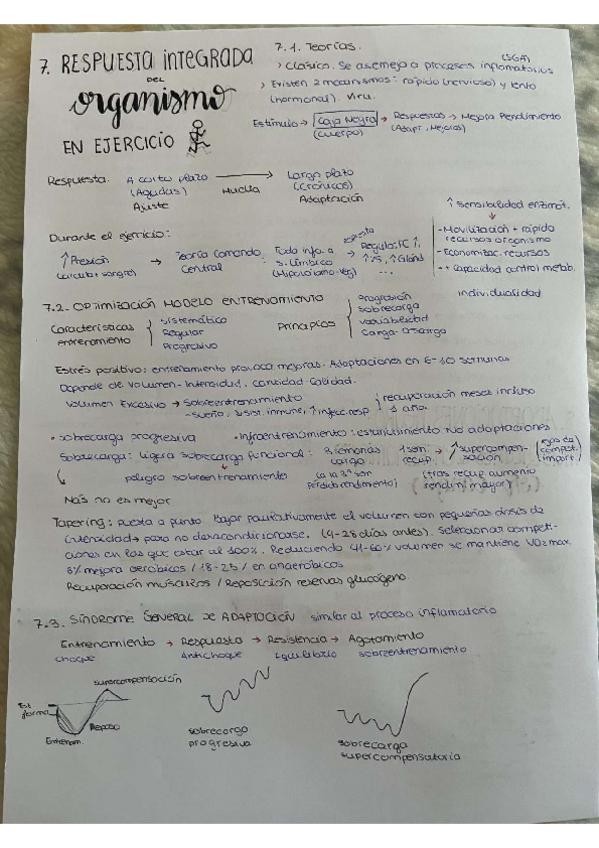 7. RESPUESTA INTEGRADA
DEL
organismo
EN EJERCICIO
7.1. Teorías.
> Clásica. Se asemeja a procesos inflamatorios (SGA)
> Existen 2 mecanismos: rápido (nervioso) y lento
(hormonal). Viru.
Estímulo → Caja Negra → Respuestas → Mejora Rendimiento
(cuerpo) (Adapt. Mejoras)
Respuesta. A corto plazo → Largo plazo
(Agudas) Huella (Crónicas)
Ajuste Adaptación
↑ Sensibilidad enzimát.
- Movilización + rápida
recursos organismo
- Economizac. recursos
- + capacidad control metab.
Durante el ejercicio:
↑ Presión → Teoría Comando → Toda info. a
(círcula + sangre) Central S. Límbico
(Hipotálamo
Regulac. FC ↑,
...
7.2. OPTIMIZACIÓN MODELO ENTRENAMIENTO individualidad
Características
entrenamiento
sistemático
Regular
Progresivo
Principios
progresión
sobrecarga
variabilidad
Carga
Estrés positivo: entrenamiento provoca mejoras. Adaptaciones en 6-10 semanas
Depende de volumen - Intensidad. cantidad - calidad.
Volumen Excesivo → Sobreentrenamiento recuperación meses incluso
- sueño, ↓ sist. inmune, ↑ infecc. resp 1 año.
• sobrecarga progresiva • Infraentrenamiento: estancamiento No adaptaciones
Sobrecarga: Ligera sobrecarga funcional: 3 semanas 1 sem. → ↑ supercompen-
carga recup. sación
↳ peligro sobreentrenamiento (a la 3ª son (tras recup. aumento
pérdida rendimiento) rendim. mayor)
Más no es mejor
Tapering: puesta a punto. Bajar paulativamente el volumen con pequeñas dosis de
intensidad → para no desacondicionarse. (4-28 días antes). Seleccionar competi-
ciones en las que estar al 100%. Reduciendo 41-60% volumen se mantiene VO2 max.
8% mejora aeróbicos / 18-25 / en anaeróbicos
Recuperación músculos / Reposición reservas glucógeno.
7.3. SÍNDROME GENERAL DE ADAPTACIÓN similar al proceso inflamatorio
Entrenamiento → Respuesta → Resistencia → Agotamiento
choque Antichoque Equilibrio sobreentrenamiento
supercompensación
Est
forma
Reposo
Entrenam.
sobrecarga
progresiva
sobrecarga
supercompensatoria